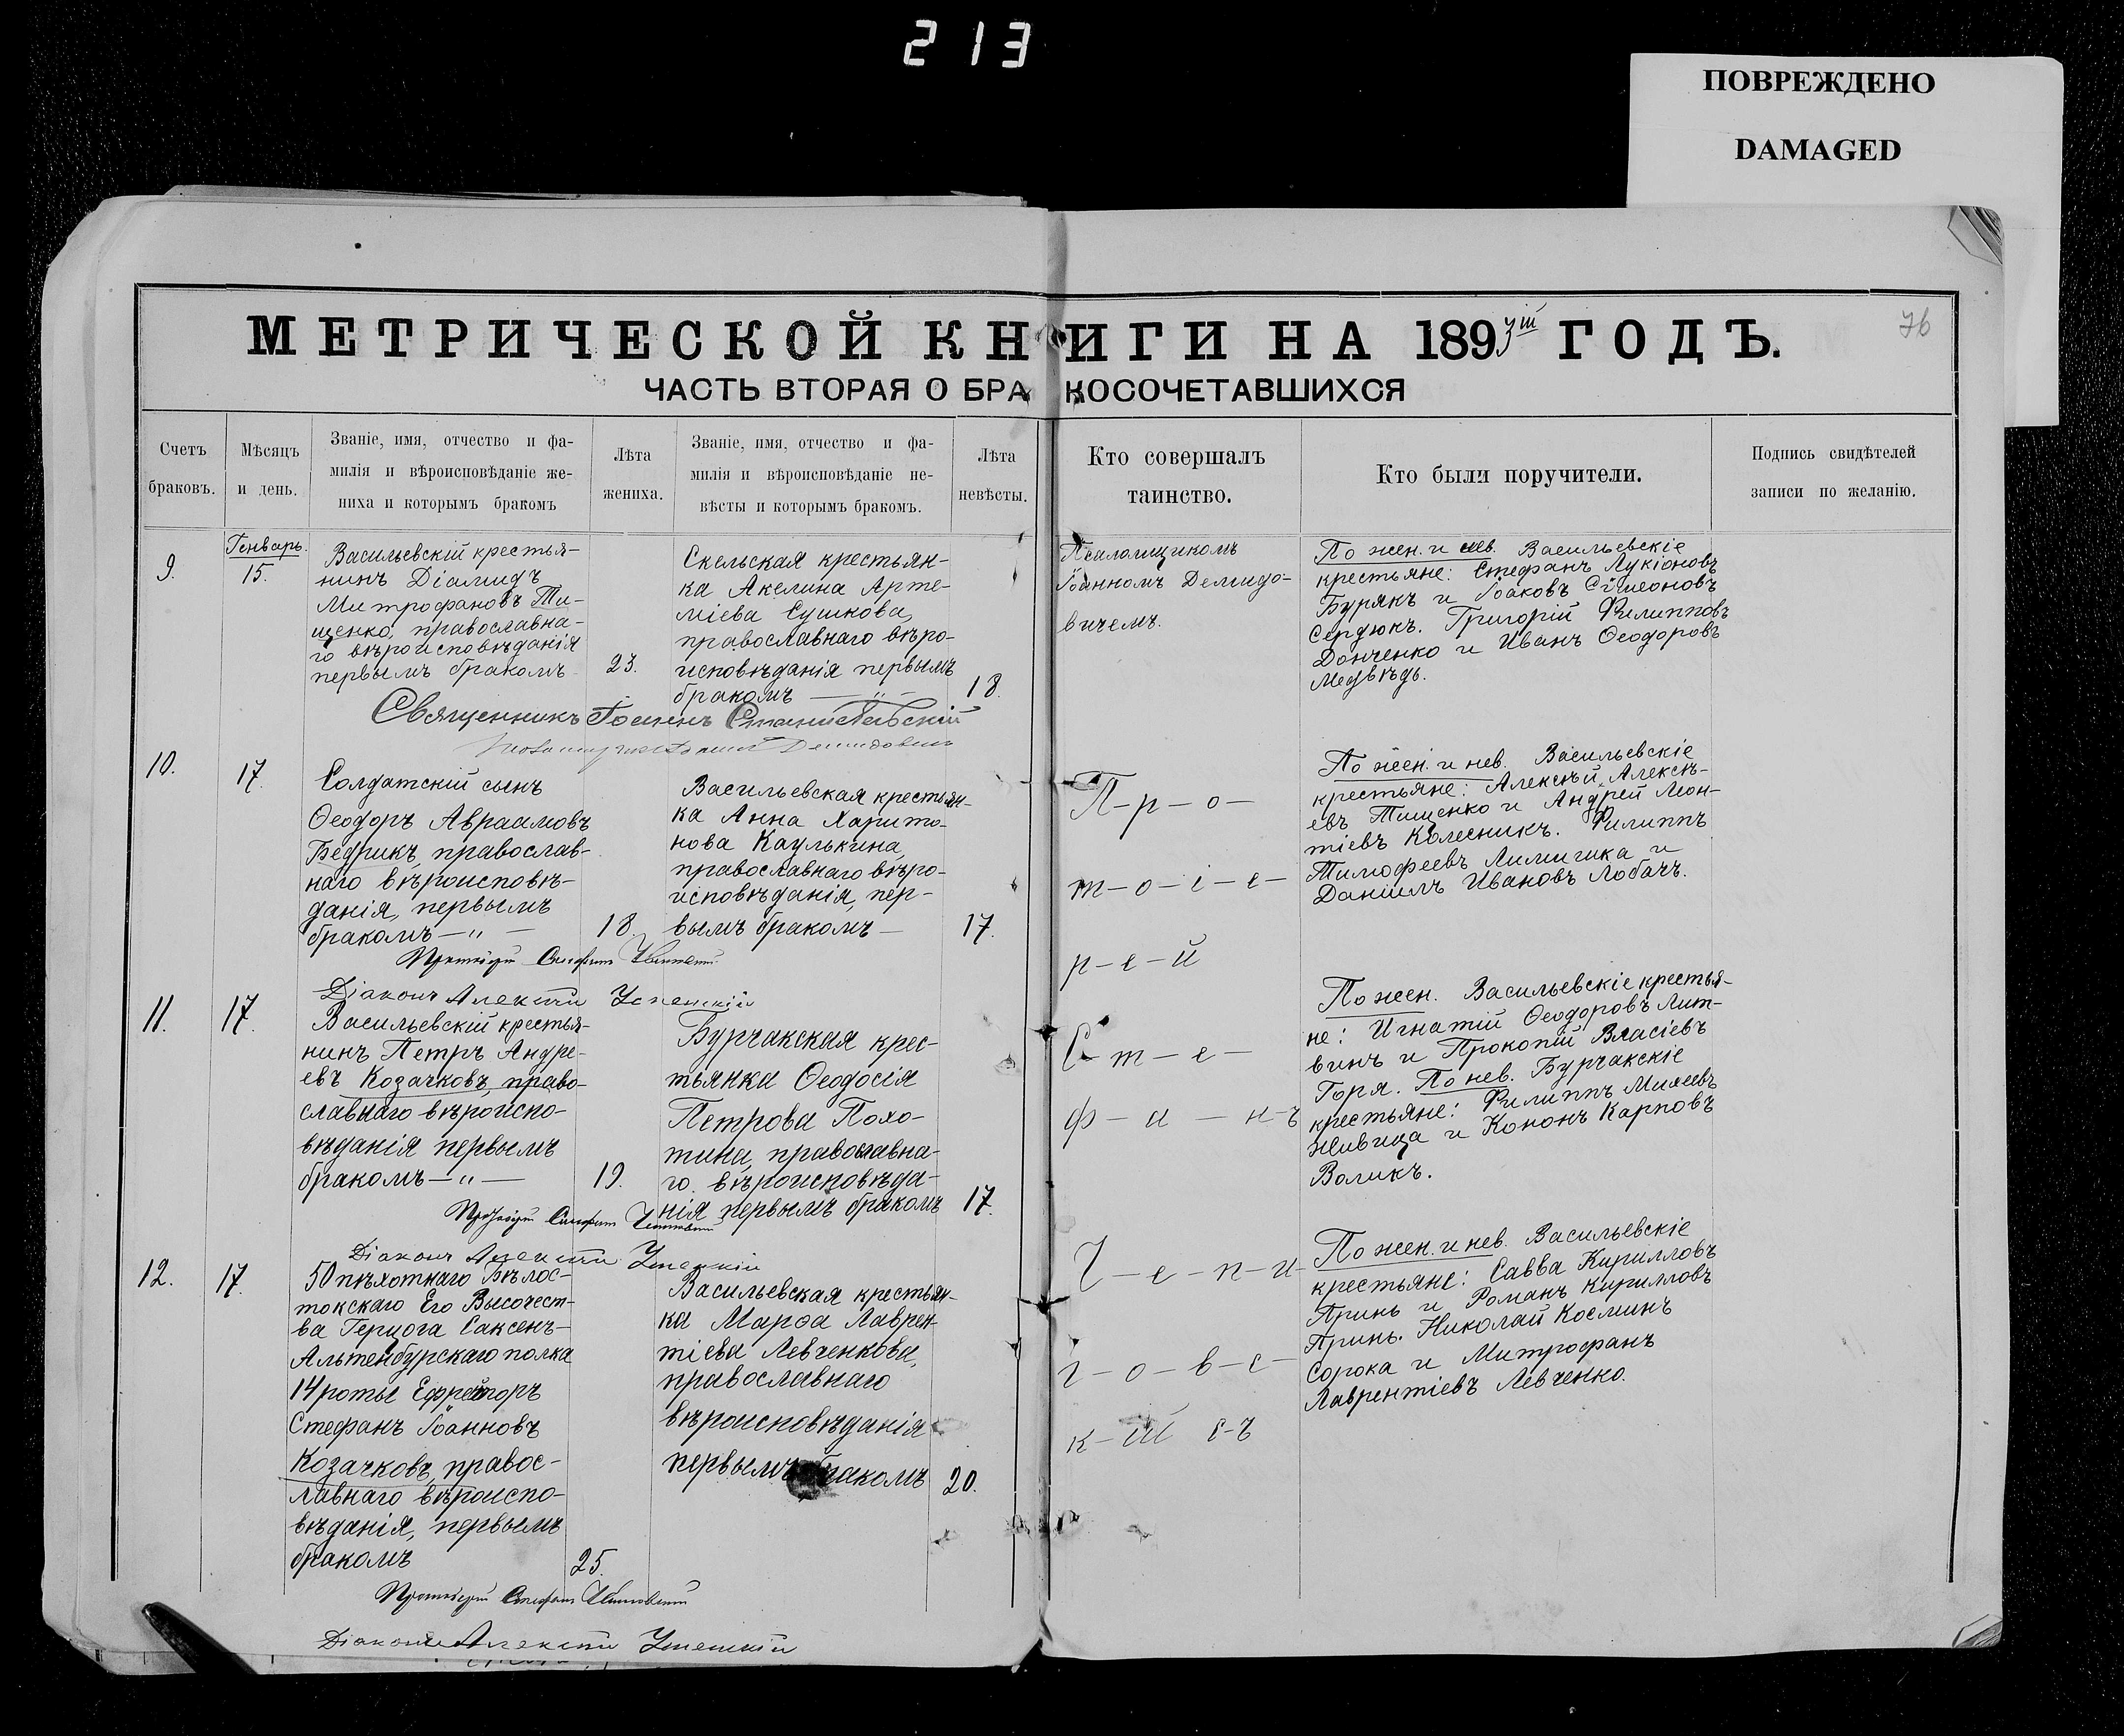 213
ПОВРЕЖДЕНО
DAMAGED
76
МЕТРИЧЕСКОЙ КНИГИ НА 1893ій ГОДЪ.
ЧАСТЬ ВТОРАЯ О БРАКОСОЧЕТАВШИХСЯ
Счетъ
браковъ.
Мѣсяцъ
и день.
Званіе, имя, отчество и фа-
милія и вѣроисповѣданіе же-
ниха и которымъ бракомъ
Лѣта
жениха.
Званіе, имя, отчество и фа-
милія и вѣроисповѣданіе не-
вѣсты и которымъ бракомъ.
Лѣта
невѣсты.
Кто совершалъ
таинство.
Кто были поручители.
Подпись свидѣтелей
записи по желанію.
9.
Генварь.
15.
Васильевскій крестья-
нинъ Діамидъ
Митрофановъ Ти-
щенко, православна-
го вѣроисповѣданія
первымъ бракомъ
23.
Скельская крестьян-
ка Акелина Арте-
міева Сушкова,
православнаго вѣро-
исповѣданія первымъ
бракомъ — " —
18.
Псаломщикомъ
Іоанномъ Демидо-
вичемъ.
По жен. и нев. Васильевскіе
крестьяне: Стефанъ Лукіоновъ
Бурякъ и Іоаковъ Сѵмеоновъ
Сердюкъ. Григорій Филипповъ
Донченко и Иванъ Ѳеодоровъ
Медвѣдь.
Священникъ Іоаннъ Станиславскій
Псаломщикъ Іоаннъ Демидовичъ
10.
17.
Солдатскій сынъ
Ѳеодоръ Авраамовъ
Бедрикъ, православ-
наго вѣроисповѣ-
данія, первымъ
бракомъ — " —
18.
Васильевская крестьян-
ка Анна Харито-
нова Каулькина,
православнаго вѣро-
исповѣданія, пер-
вымъ бракомъ —
17.
П-р-о-
т-о-і-е-
р-е-й
По жен. и нев. Васильевскіе
крестьяне: Алексѣй Алексѣ-
евъ Тищенко и Андрей Леон-
тіевъ Колесникъ. Филиппъ
Тимофеевъ Лимичка и
Даніилъ Ивановъ Лобачъ.
Протоіерей Стефанъ
Діаконъ Алексѣй Успенскій
11.
17.
Васильевскій крестья-
нинъ Петръ Андре-
евъ Козачковъ, право-
славнаго вѣроиспо-
вѣданія первымъ
бракомъ — " —
19.
Бурчакская крес-
тьянка Ѳеодосія
Петрова Похо-
тина, православна-
го вѣроисповѣда-
нія первымъ бракомъ
17.
С-т-е-
ф-а-н-ъ
По жен. Васильевскіе крестья-
не: Игнатій Ѳеодоровъ Лит-
винъ и Прокопій Власіевъ
Горя. По нев. Бурчакскіе
крестьяне: Филиппъ Михеевъ
Живица и Кононъ Карповъ
Воликъ.
Протоіерей Стефанъ
Діаконъ Алексѣй Успенскій
12.
17.
50 пѣхотнаго Бѣлос-
токскаго Его Высочест-
ва Герцога Саксенъ-
Альтенбурскаго полка
14 роты Ефрейторъ
Стефанъ Іоанновъ
Козачковъ, правос-
лавнаго вѣроиспо-
вѣданія, первымъ
бракомъ
25.
Васильевская крестьян-
ка Марѳа Лаврен-
тіева Левченкова,
православнаго
вѣроисповѣданія
первымъ бракомъ
20.
к-ій
По жен. и нев. Васильевскіе
крестьяне: Савва Кирилловъ
Принь и Романъ Кирилловъ
Принь. Николай Косминъ
Сорока и Митрофанъ
Лаврентіевъ Левченко.
Протоіерей Стефанъ
Діаконъ Алексѣй Успенскій